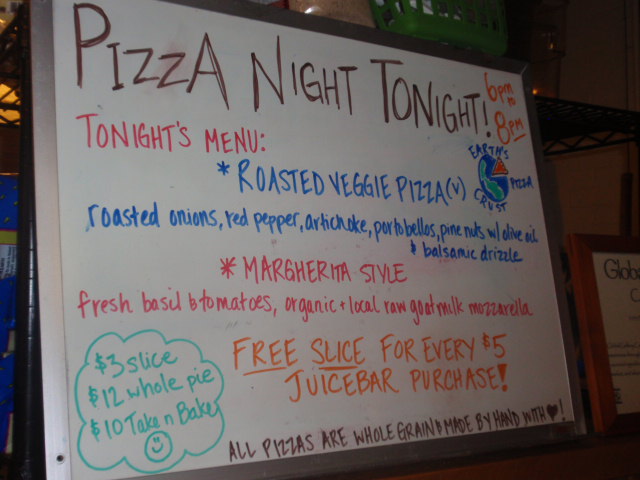 PIZZA NIGHT TONIGHT!
6pm to 8pm
TONIGHT'S MENU:
* ROASTED VEGGIE PIZZA (V)
EARTH'S CRUST PIZZA
roasted onions, red pepper, artichoke, portobellos, pine nuts w/ olive oil
& balsamic drizzle
* MARGHERITA STYLE
fresh basil & tomatoes, organic + local raw goat milk mozzarella
$3 slice
$12 whole pie
$10 Take n Bake
FREE SLICE FOR EVERY $5
JUICEBAR PURCHASE!
ALL PIZZAS ARE WHOLE GRAIN & MADE BY HAND WITH ♥!